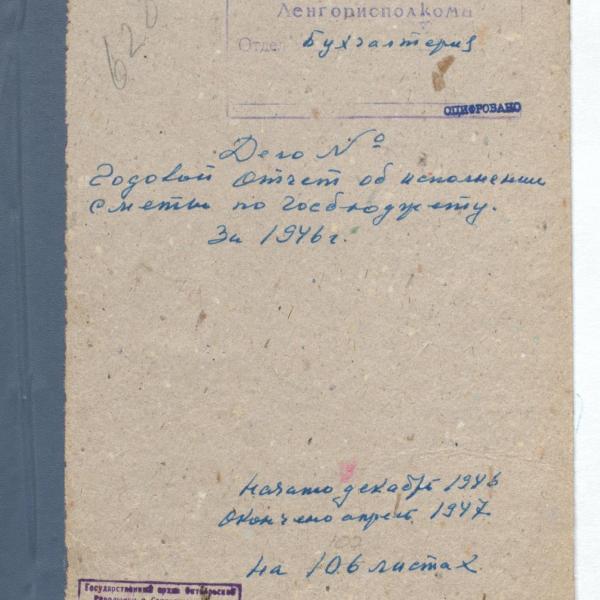 628
Ленгорисполкома
Отдел Бухгалтерия
ОЦИФРОВАНО
Дело №
Годовой отчет об исполнении
сметы по госбюджету.
За 1946 г.
Начато декабрь 1946
Окончено апрель 1947
102
На 106 листах
Государственный архив Октябрьской